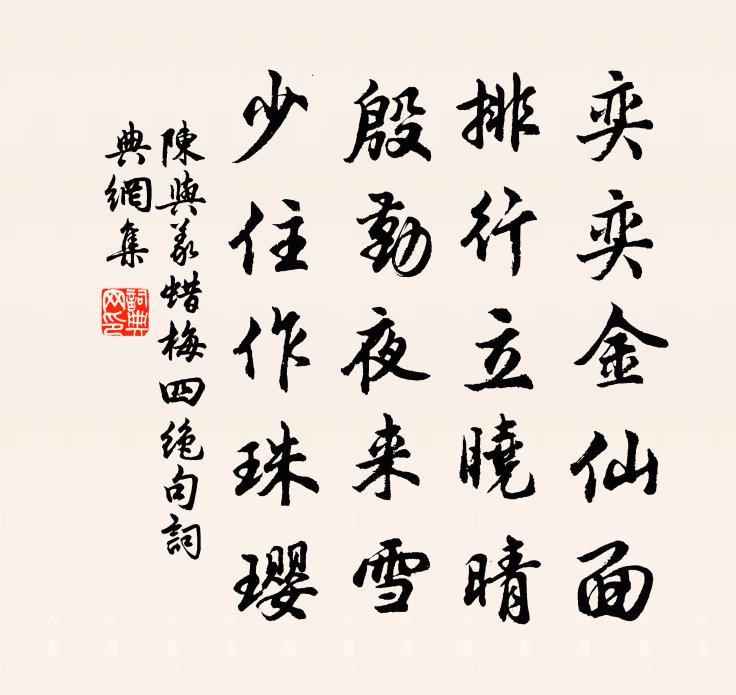 奕奕金仙面
排行立曉晴
殷勤夜来雪
少住作珠璎
陳與義蜡梅四绝句詞
典網集
詞典
网印